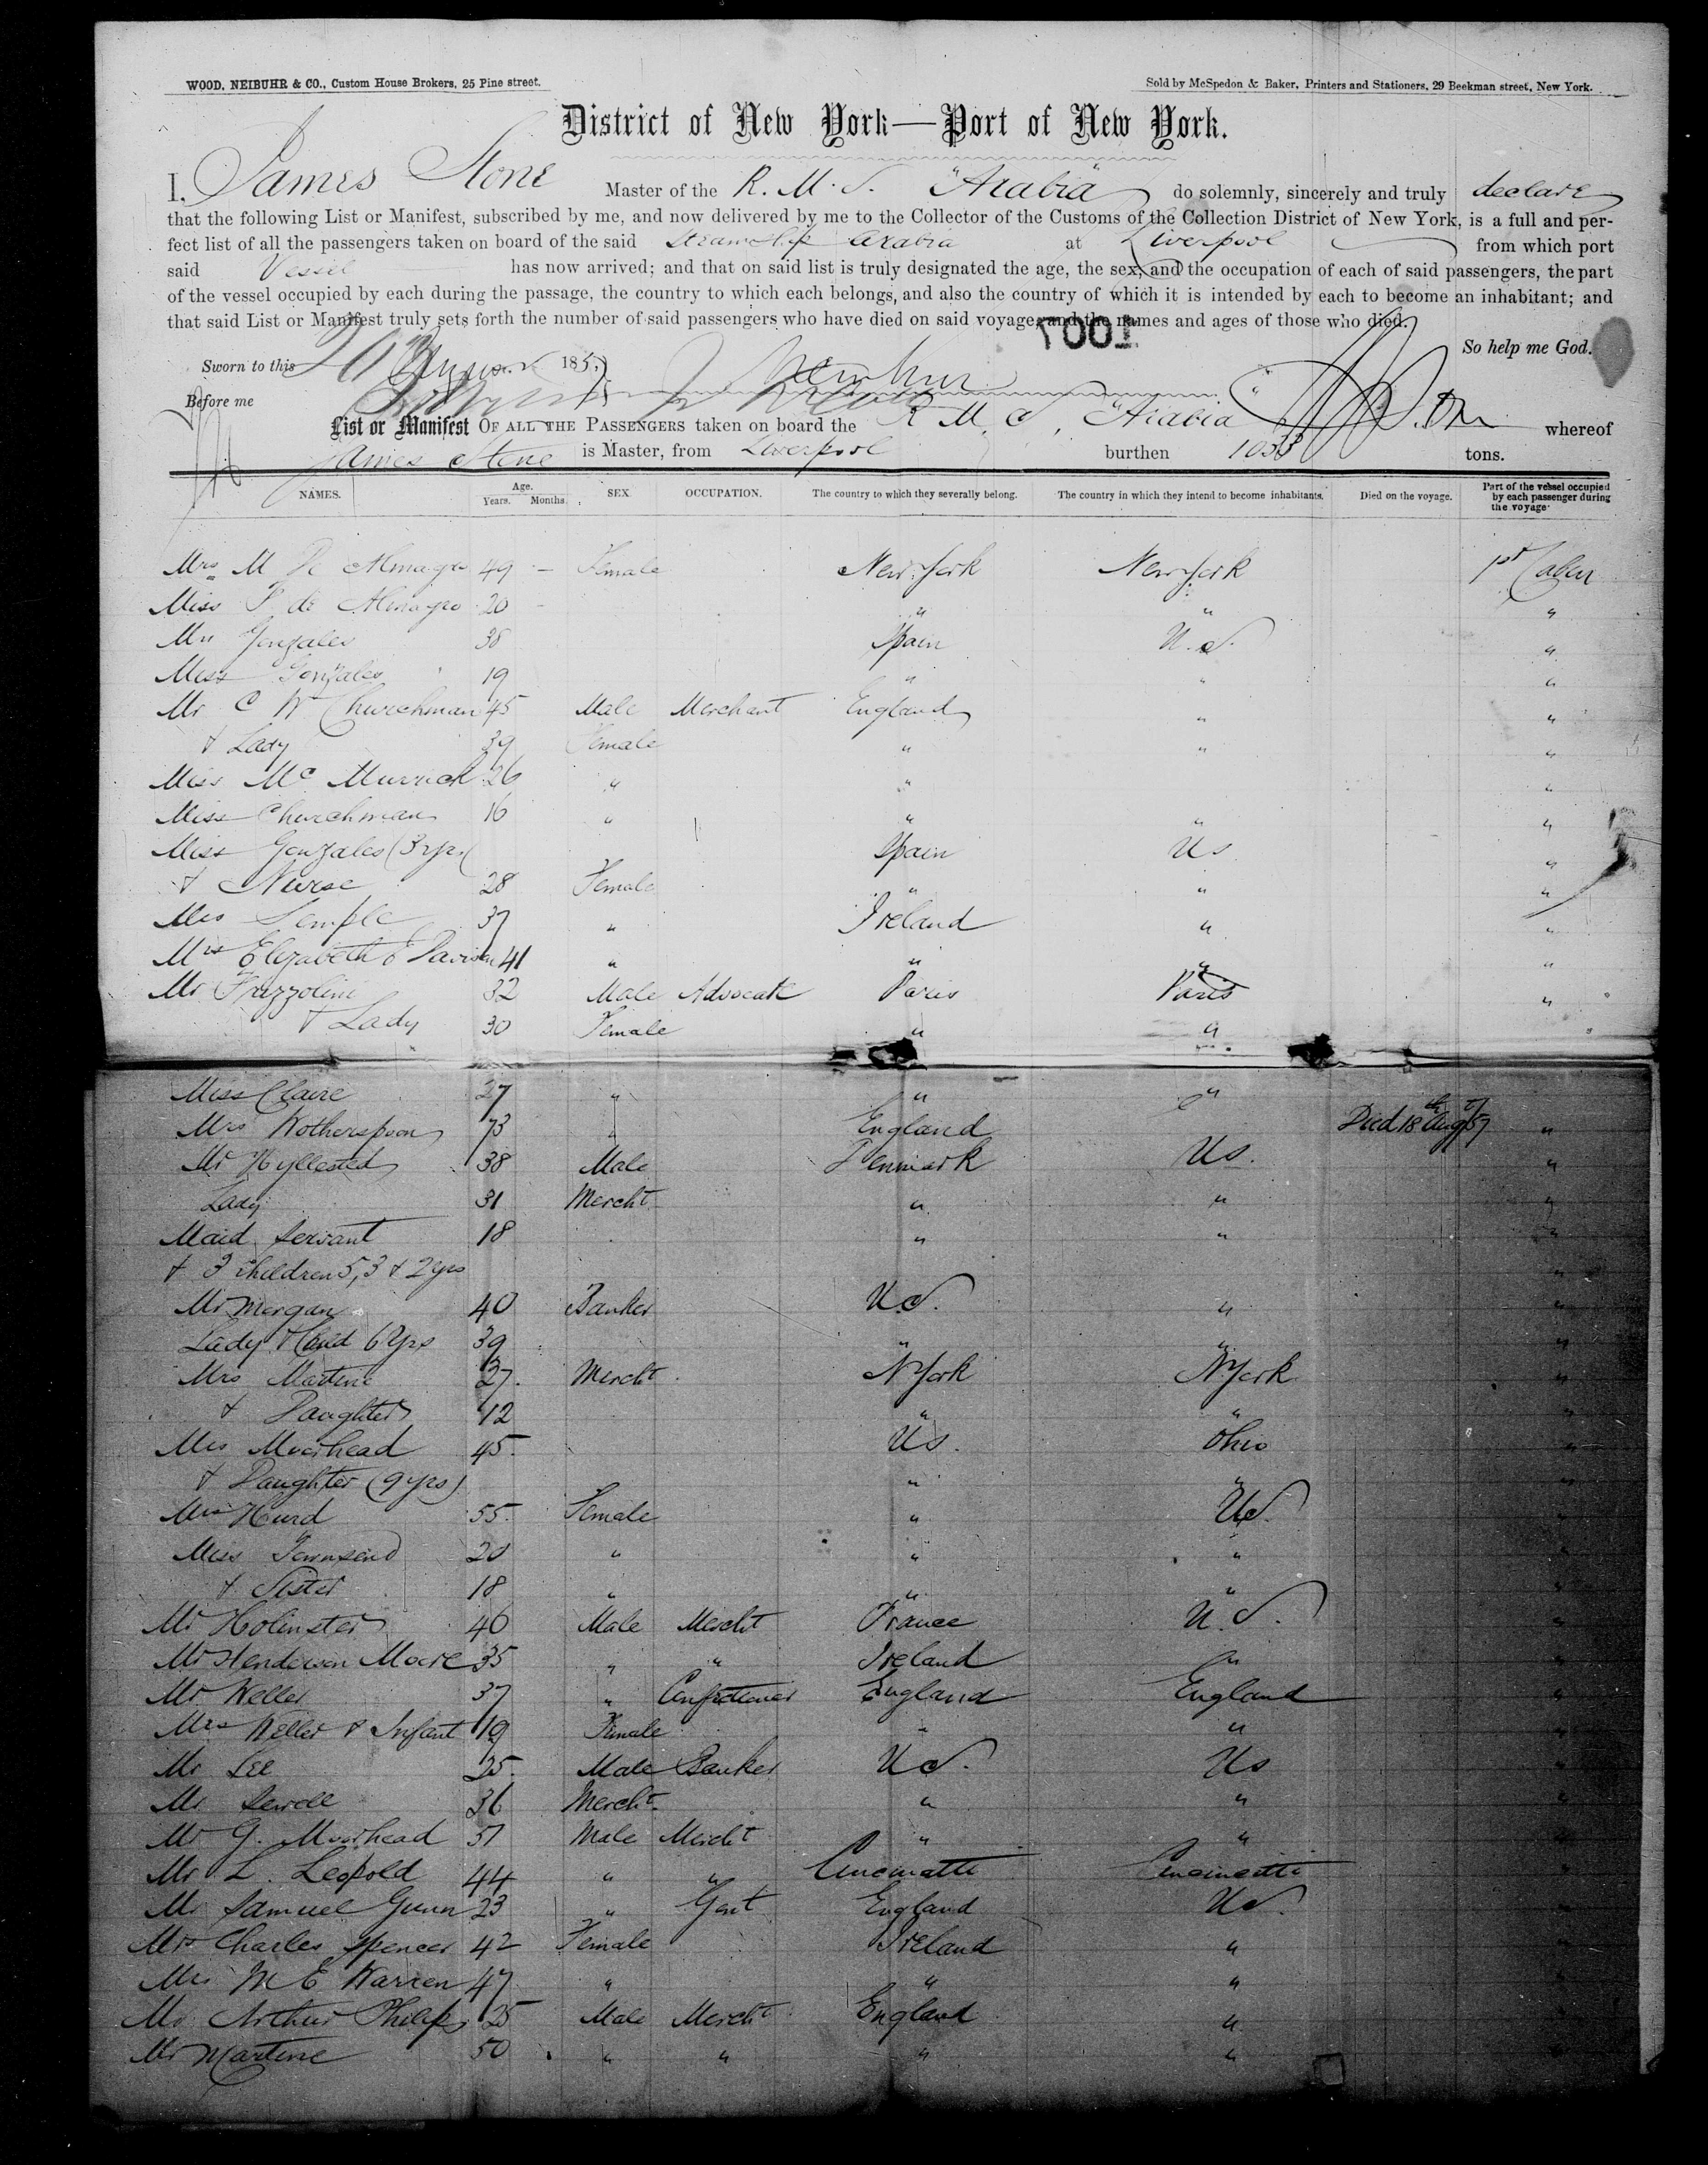 WOOD, NEIBUHR & CO., Custom House Brokers, 25 Pine street. Sold by McSpedon & Baker, Printers and Stationers, 29 Beekman street, New York.
District of New York—Port of New York.
I, James Stone Master of the R. M. S. "Arabia" do solemnly, sincerely and truly declare
that the following List or Manifest, subscribed by me, and now delivered by me to the Collector of the Customs of the Collection District of New York, is a full and per-
fect list of all the passengers taken on board of the said Steam Ship Arabia at Liverpool from which port
said Vessel has now arrived; and that on said list is truly designated the age, the sex, and the occupation of each of said passengers, the part
of the vessel occupied by each during the passage, the country to which each belongs, and also the country of which it is intended by each to become an inhabitant; and
that said List or Manifest truly sets forth the number of said passengers who have died on said voyage, and the names and ages of those who died.
1001
So help me God.
Sworn to this 185
Before me
List or Manifest OF ALL THE PASSENGERS taken on board the R. M. S. "Arabia" whereof
James Stone is Master, from Liverpool burthen 1033 tons.
NAMES. Age. Years. Months. SEX. OCCUPATION. The country to which they severally belong. The country in which they intend to become inhabitants. Died on the voyage. Part of the vessel occupied by each passenger during the voyage
Mrs M De Almagro 49 — Female New York New York 1st Cabin
Miss P de Almagro 20 - " " "
Mrs Gonzales 38 Spain U.S. "
Miss Gonzales 19 " " "
Mr C W Churchman 45 Male Merchant England " "
& Lady 39 Female " " "
Miss Mc Murrich 26 " " "
Miss Churchman 16 " " " "
Miss Gonzales (3 yrs) Spain Us "
& Nurse 28 Female " " "
Mrs Semple 37 " Ireland " "
Mrs Elizabeth E Davison 41 " " " "
Mr Frezzolini 32 Male Advocate Paris Paris "
& Lady 30 Female " "
Miss Claire 27 " " "
Mrs Wotherspoon 73 " England Died 18th Augt 57 "
Mr Hyllested 38 Male Denmark Us. "
Lady 31 Mercht " " "
Maid Servant 18 " " "
& 3 Children 5, 3 & 2 yrs "
Mr Morgan 40 Banker U.S. " "
Lady & Child 6 Yrs 39 " " "
Mrs Martine 27. Mercht N York N York "
& Daughter 12 " " "
Mrs Moorhead 45. Us. Ohio "
& Daughter (9 yrs) " " "
Mrs Hurd 55. Female " US. "
Miss Townsend 20 " " " "
& Sister 18 " " " "
Mr Holinster 46 Male Mercht France U.S. "
Mr Henderson Moore 35 " " Ireland " "
Mr Weller 37 " Confectioner England England "
Mrs Weller & Infant 19 Female " " "
Mr Lee 25. Male Banker US. Us "
Mr Sewell 36 Mercht " " "
Mr G. Moorhead 51 Male Mercht " " "
Mr L. Leopold 44 " " Cincinatti Cincinatti "
Mr Samuel Gunn 23 " Gent England US. "
Mrs Charles Spencer 42 Female Ireland "
Mrs M E Warren 47 " " "
Mr Arthur Philips 25 Male Mercht England "
Mr Martine 50 " " " "